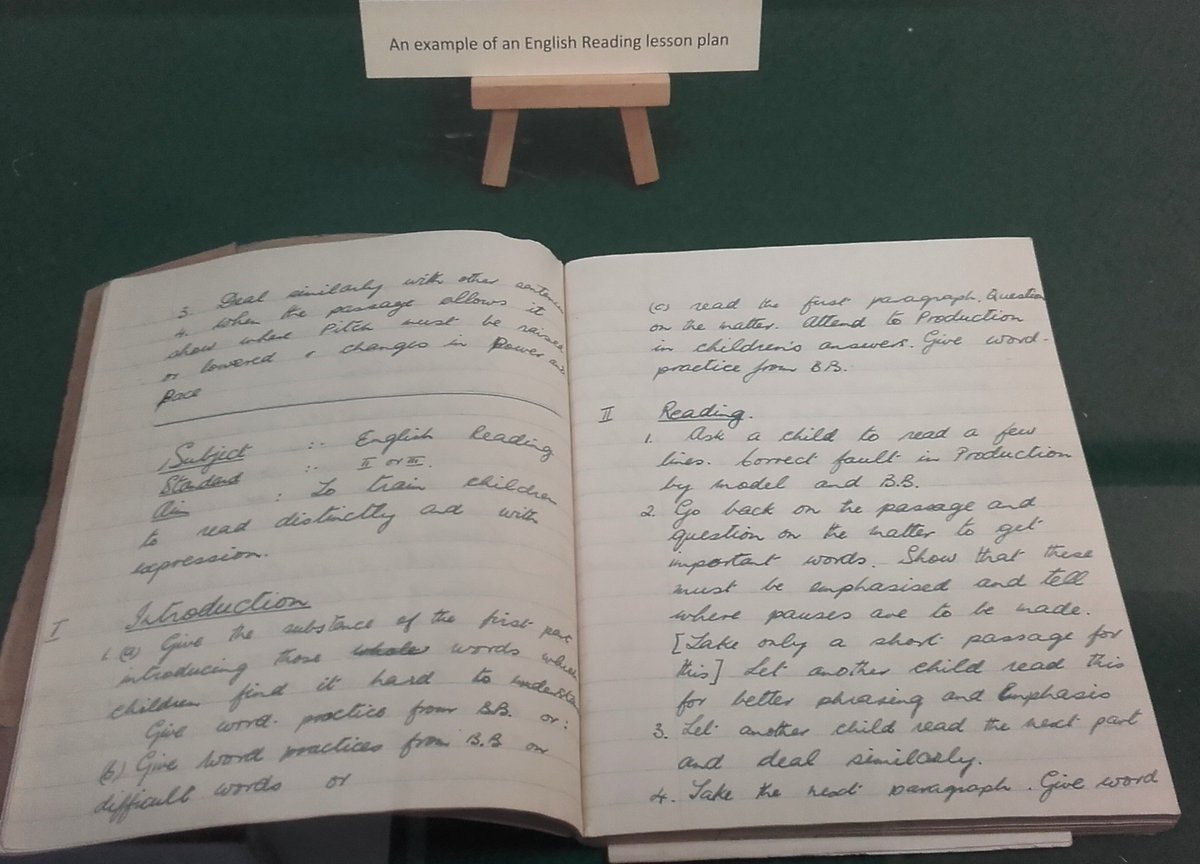 An example of an English Reading lesson plan
3. Deal similarly with other sentences
4. When the passage allows it
show where Pitch must be raised
or lowered & changes in Power and
Pace
Subject :- English Reading
Standard :- II or III.
Aim : To train children
to read distinctly and with
expression.
I Introduction
1. (a) Give the substance of the first part
introducing those whole words which
children find it hard to understand
Give word-practice from B.B. or:
(b) Give word practices from B.B on
difficult words or
(c) read the first paragraph. Question
on the matter. Attend to Production
in children's answers. Give word-
practice from B.B.
II Reading.
1. Ask a child to read a few
lines. Correct fault in Production
by model and B.B.
2. Go back on the passage and
question on the matter to get
important words. Show that these
must be emphasised and tell
where pauses are to be made.
[Take only a short passage for
this] Let another child read this
for better phrasing and Emphasis
3. Let another child read the next part
and deal similarly.
4. Take the next paragraph. Give word